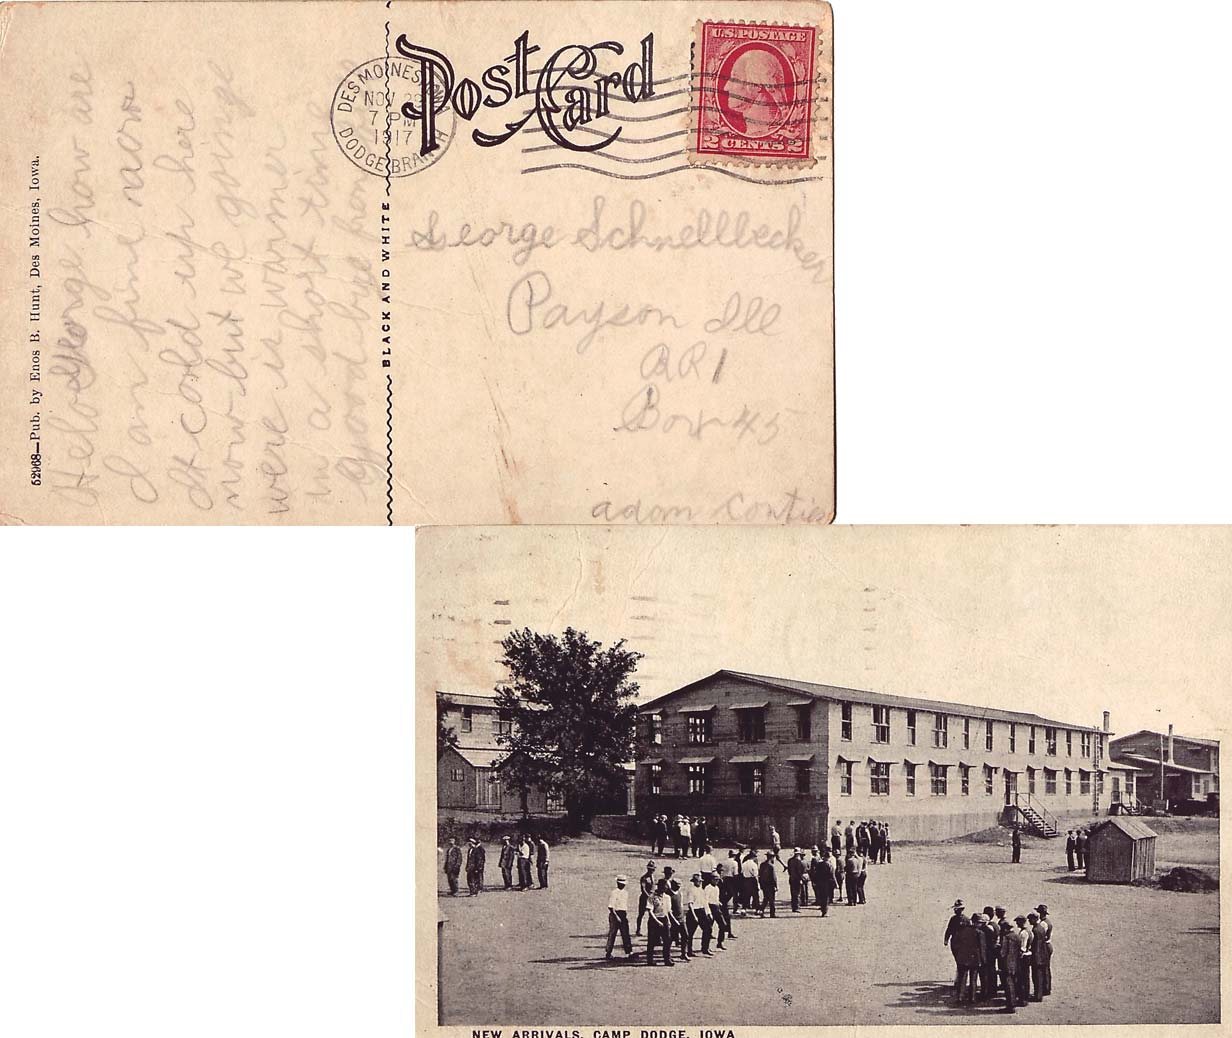 Post Card
DES MOINES, IOWA
NOV 2
7 PM
1917
DODGE BRANCH
U.S. POSTAGE
2 CENTS 2
52968—Pub. by Enos B. Hunt, Des Moines, Iowa.
BLACK AND WHITE
Helo George how are
I am fine now
it cold up here
now but we goinge
were is warmer
in a short time
Good bye from
George Schnellbecker
Payson Ill
RR1
Box 45
adam
NEW ARRIVALS, CAMP DODGE, IOWA